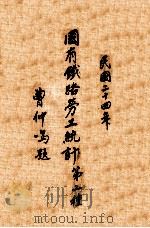 民國二十四年
國有鐵路勞工統計第二種
曾仲鳴題
www.toutiao.im